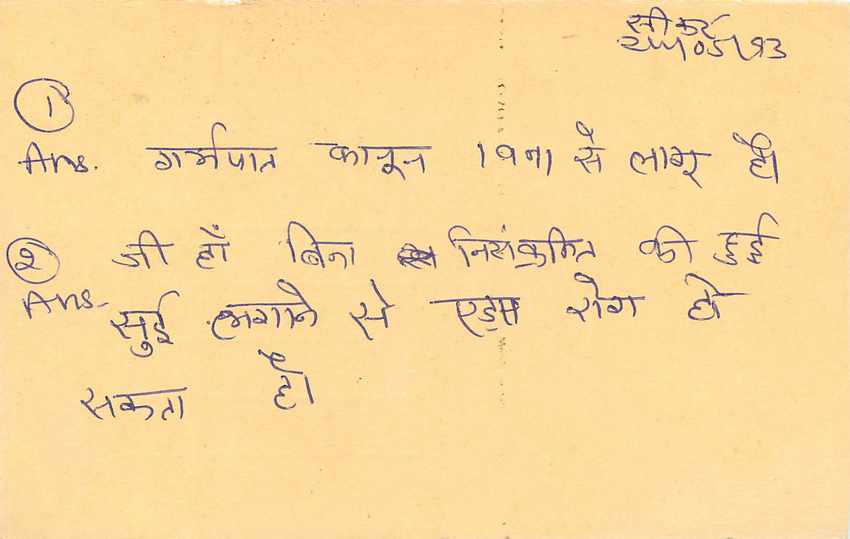 सीकर
①
Ans. गर्भपात कानून 1971 से लागू है।
② जी हाँ बिना निसंक्रमित की हुई
Ans- सुई लगाने से एड्स रोग हो
सकता है।